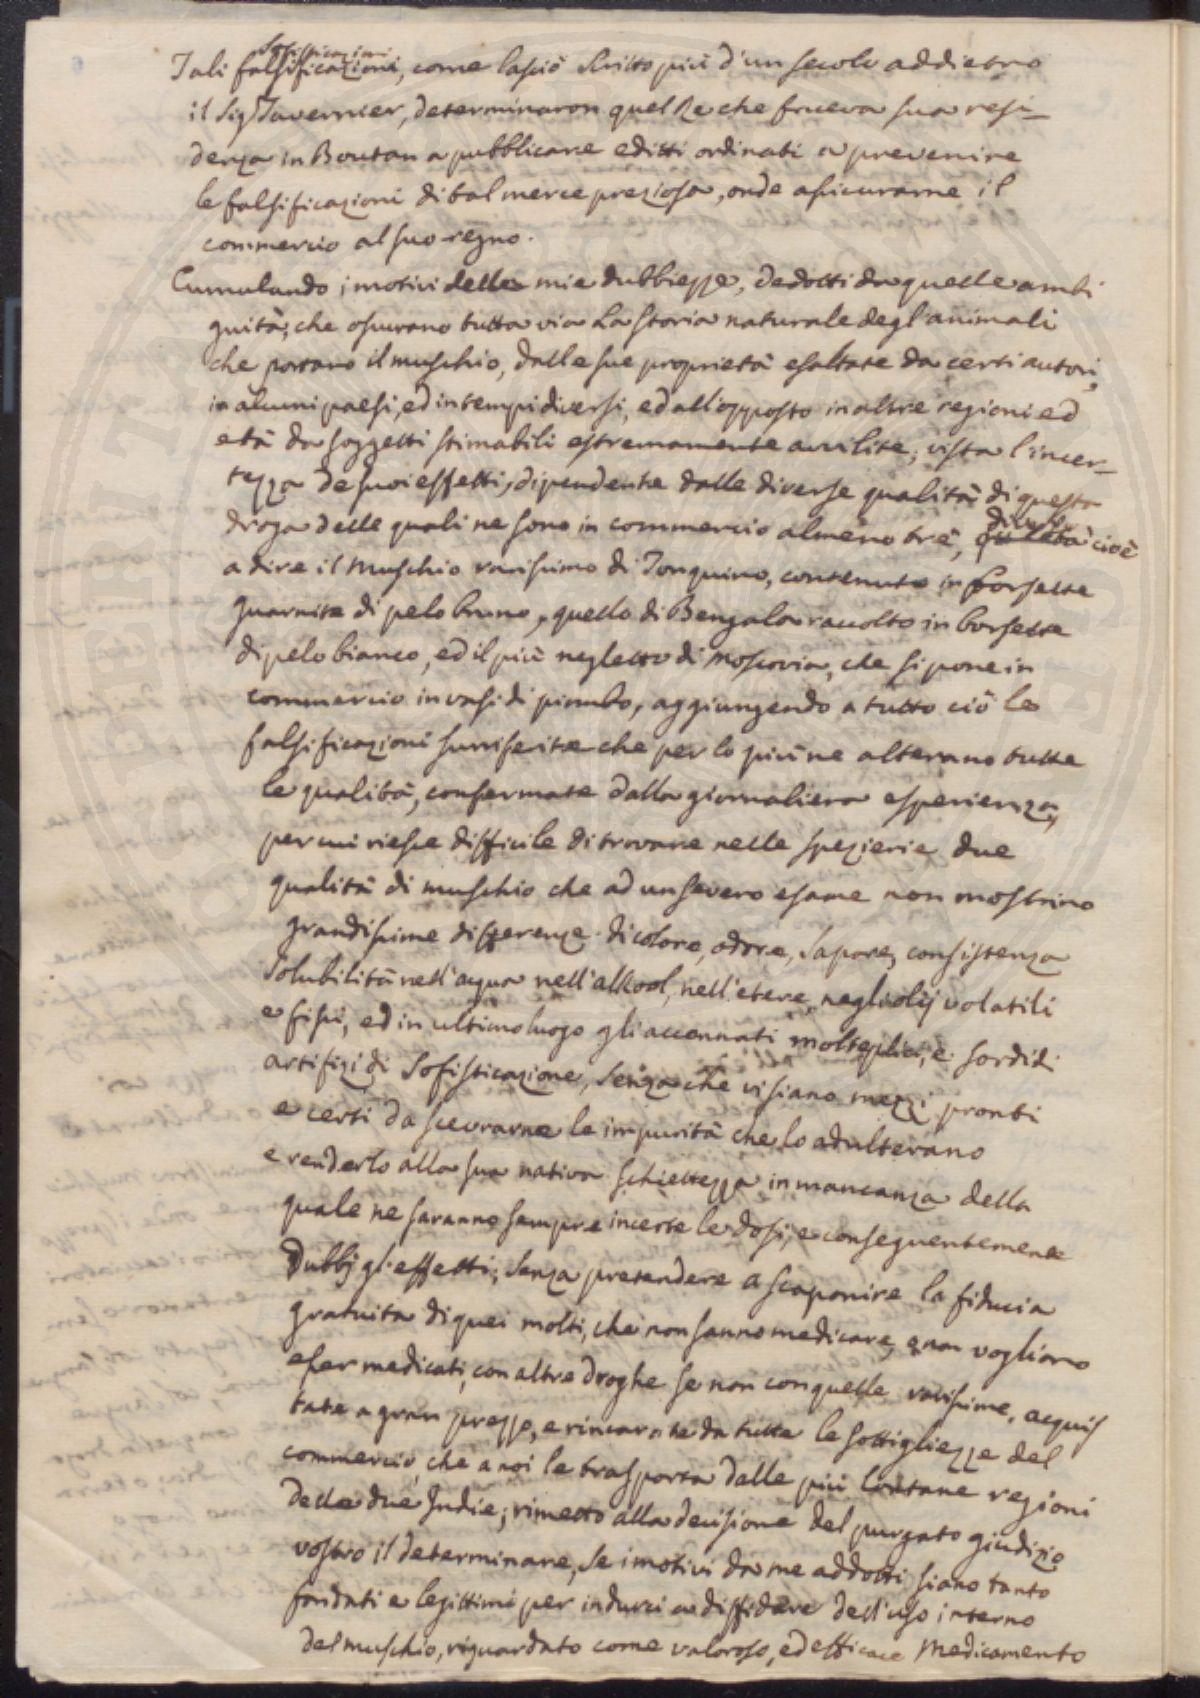 Sofisticazioni
Tali falsificazioni, come lasciò scritto più d'un secolo addietro
il Sig Tavernier, determinaron quel Re che faceva sua resi-
denza in Boutan a pubblicare editti ordinati a prevenire
le falsificazioni di tal merce preziosa, onde assicurarne il
commercio al suo regno.
Cumulando i motivi delle mie dubbiezze, dedotti da quelle ambi
guità, che oscurano tutta via la storia naturale degl'animali
che portano il muschio, dalle sue proprietà esaltate da certi autori,
in alcuni paesi, ed in tempi diversi, ed all'opposto in altre regioni ed
età da soggetti stimabili estremamente avvilite; vista l'incer-
tezza de suoi effetti, dipendente dalle diverse qualità di questa
droga delle quali ne sono in commercio almeno tre, diverse cioè
a dire il Muschio rarissimo di Tonquino, contenuto in borsette
guarnite di pelo bruno, quello di Bengala raccolto in borsette
di pelo bianco, ed il più negletto di Moscovia, che si pone in
commercio in vasi di piombo, aggiungendo a tutto ciò le
falsificazioni surriferite che per lo più ne alterano tutte
le qualità, confermate dalla giornaliera esperienza,
per cui riesce difficile di trovare nelle spezierie due
qualità di muschio che ad un severo esame non mostrino
grandissime differenze di colore, odore, sapore, consistenza
solubilità nell'acqua nell'alkool, nell'etere, negli olij volatili
e fissi, ed in ultimo luogo gli accennati molteplici, e sordidi
artifizi di sofisticazione, senza che vi siano mezzi pronti
e certi da scevrarne le impurità che lo adulterano
e renderlo alla sua nativa schiettezza in mancanza della
quale ne saranno sempre incerte le dosi, e conseguentemente
dubbj gl'effetti; senza pretendere a scaponire la fiducia
gratuita di quei molti, che non sanno medicare, e non vogliono
esser medicati, con altre droghe se non con quelle rarissime, acquis
tate a gran prezzo, e rincarate da tutte le sottigliezze del
commercio, che a noi le trasporta dalle più lontane regioni
delle due Indie; rimetto alla decisione del purgato giudizio
vostro il determinare, se i motivi da me addotti siano tanto
fondati e legittimi per indurci a diffidare dell'uso interno
del muschio, riguardato come valoroso, ed efficace Medicamento